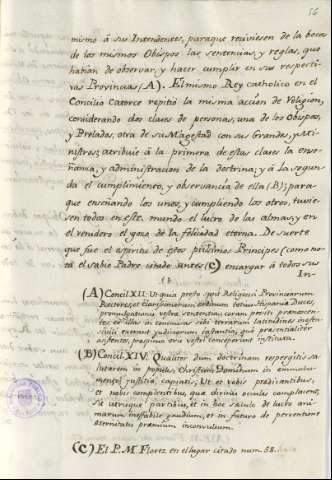 56
mismo á sus Intendentes, paraque reciviesen de la boca
de los mismos Obispos las sentencias, y reglas, que
habian de observar, y hacer cumplir en sus respecti-
vas Provincias (A). El mismo Rey catholico en el
Concilio Catorce repitió la misma accion de Religion,
considerando dos clases de personas, una de los Obispos,
y Prelados, otra de su Magestad con sus Grandes, y Mi-
nistros; atribuie á la primera de estas clases la ense-
ñanza, y administracion de la doctrina; y á la segun-
da el cumplimiento, y observancia de ella (B); para
que enseñando los unos, y cumpliendo los otros, tuvie-
sen todos en este mundo el lucro de las almas, y en
el venidero el gozo de la felicidad eterna. De suerte
que fue el espiritu de estos piisimos Principes (como no-
ta el sabio Padre citado antes (C) encargar á todos sus
In-
(A) Concil. XII. Ut quia presto sunt Religiosi Provinciarum
Rectores, et Clarissimorum ordinum totius Hispaniæ Duces,
promulgationis vestræ sententias coram positi prænoscen-
tes, eo illas in commissas sibi terrarum latitudines inoffen-
sibili exerant judiciorum instantia, quo præsentialiter
assistentes, perspicua oris vestri conceperint instituta.
(B) Concil. XIV. Qualiter dum doctrinam respergitis sa-
lutarem in populis, Christum Dominum in emmolu-
mentis justitiæ capiatis; Ut et vobis prædicantibus,
et nobis complentibus, quæ divinis oculis complaceant,
sit utrisque partibus, et in hoc sæculo de lucro ani-
marum ineffabile gaudium, et in futuro de percemtione
æternitatis præmium inconvulsum.
(C) El P. M. Florez en el lugar citado num. 58.